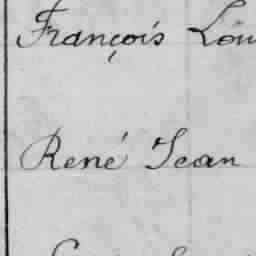 François Lou
René Jean